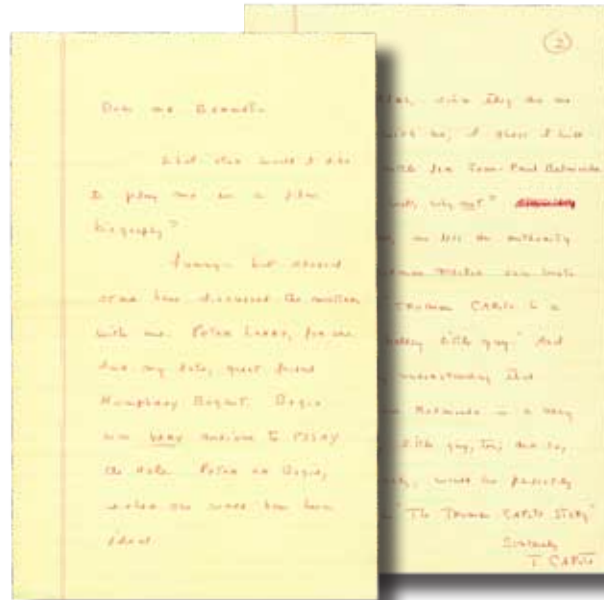 Dear Mr Bennett.
What star would I like
to play me in a film
biography?
Funny - but several
stars have discussed the matter
with me. Peter Lorre, for one
And my late, great friend
Humphrey Bogart. Bogie
was very anxious to essay
the role. Peter or Bogie,
either one would have been
ideal.
2
, since they are no
with us, I guess I will
settle for Jean-Paul Belmondo
well, why not?
, no less an authority
Norman Mailer once wrote
"Truman Capote is a
ballsy little guy." And
my understanding that
Belmondo is a very
little guy, too, and so,
, would be perfectly
in "The Truman Capote Story"
Sincerely
T. Capote